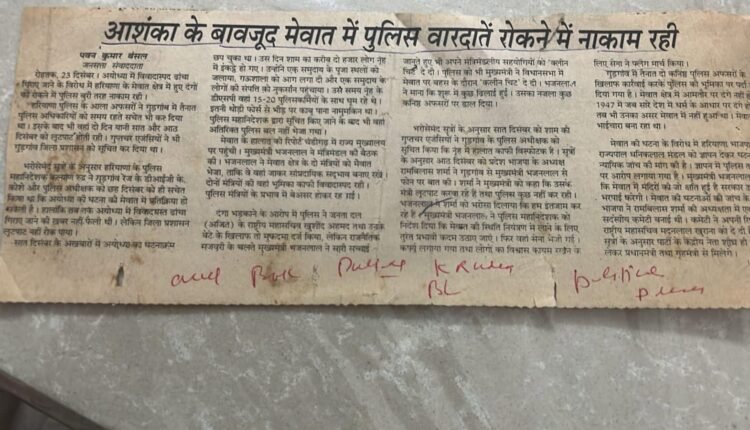 आशंका के बावजूद मेवात में पुलिस वारदातें रोकने में नाकाम रही
पवन कुमार बंसल
जनसत्ता संवाददाता
रोहतक, 23 दिसंबर। अयोध्या में विवादास्पद ढांचा
गिराए जाने के विरोध में हरियाणा के मेवात क्षेत्र में हुए दंगों
को रोकने में पुलिस बुरी तरह नाकाम रही।
हरियाणा पुलिस के आला अफसरों ने गुड़गांव में तैनात
पुलिस अधिकारियों को समय रहते सचेत भी कर दिया
था। इसके बाद भी वहां दो दिन यानी सात और आठ
दिसंबर को लूटपाट होती रही। गुप्तचर एजंसियों ने भी
गुड़गांव जिला प्रशासन को सूचित कर दिया था।
भरोसेमंद सूत्रों के अनुसार हरियाणा के पुलिस
महानिदेशक कल्याण रुद्र ने गुड़गांव रेंज के डीआईजी के.
कोशी और पुलिस अधीक्षक को छह दिसंबर को ही सचेत
किया था कि अयोध्या की घटना की मेवात में प्रतिक्रिया हो
सकती है। हालांकि तब तक अयोध्या में विवादास्पद ढांचा
गिराए जाने की खबर नहीं फैली थी। लेकिन जिला प्रशासन
लूटपाट नहीं रोक पाया।
सात दिसंबर के अखबारों में अयोध्या का घटनाक्रम
छप चुका था। उस दिन शाम को करीब दो हजार लोग नूंह
में इकट्ठे हो गए। उन्होंने एक समुदाय के पूजा स्थलों को
जलाया, गऊशाला को आग लगा दी और एक समुदाय के
लोगों को संपत्ति को नुकसान पहुंचाया। उसी समय नूंह के
डीएसपी वहां 15-20 पुलिसकर्मियों के साथ घूम रहे थे।
इतनी थोड़ी फोर्स से भीड़ पर काबू पाना नामुमकिन था।
पुलिस महानिदेशक द्वारा सूचित किए जाने के बाद भी वहां
अतिरिक्त पुलिस बल नहीं भेजा गया।
मेवात के हालात की रिपोर्ट चंडीगढ़ में राज्य मुख्यालय
पर पहुंची। मुख्यमंत्री भजनलाल ने मंत्रिमंडल की बैठक
की। भजनलाल ने मेवात क्षेत्र के दो मंत्रियों को मेवात
भेजा, ताकि वे वहां जाकर सांप्रदायिक सद्भाव बनाए रखें।
दोनों मंत्रियों की वहां भूमिका काफी विवादास्पद रही।
पुलिस मंत्रियों के प्रभाव में बेअसर होकर रह गई।
दंगा भड़काने के आरोप में पुलिस ने जनता दल
(अजित) के राष्ट्रीय महासचिव खुर्शीद अहमद तथा उनके
बेटे के खिलाफ तो मुकदमा दर्ज किया, लेकिन राजनीतिक
मजबूरी के चलते मुख्यमंत्री भजनलाल ने सारी सच्चाई
जानते हुए भी अपने मंत्रिमंडलीय सहयोगियों को 'क्लीन
चिट' दे दी। पुलिस को भी मुख्यमंत्री ने विधानसभा में
मेवात पर बहस के दौरान 'क्लीन चिट' दे दी। भजनलाल
ने माना कि शुरू में कुछ ढिलाई हुई। उसका नजला कुछ
कनिष्ठ अफसरों पर डाल दिया।
भरोसेमंद सूत्रों के अनुसार सात दिसंबर को शाम की
गुप्तचर एजंसियों ने गुड़गांव के पुलिस अधीक्षक को
सूचित किया कि नूंह से हालात काफी विस्फोटक हैं। सूत्रों
के अनुसार आठ दिसंबर को प्रदेश भाजपा के अध्यक्ष
रामबिलास शर्मा ने गुड़गांव से मुख्यमंत्री भजनलाल से
फोन पर बात की। शर्मा ने मुख्यमंत्री को कहा कि उसके
मंत्री लूटपाट करवा रहे हैं तथा पुलिस कुछ नहीं कर रही।
भजनलाल शर्मा को भरोसा दिलाया कि हम इंतजाम कर
रहे हैं। मुख्यमंत्री भजनलाल ने पुलिस महानिदेशक को
निर्देश दिया कि मेवात की स्थिति नियंत्रण में लाने के लिए
तुरंत प्रभावी कदम उठाए जाएं। फिर वहां सेना भेजी गई।
कर्फ्यू लगाया गया तथा लोगों का विश्वास कायम रखने के
लिए सेना ने फ्लैग मार्च किया।
गुड़गांव में तैनात दो कनिष्ठ पुलिस अफसरों के
खिलाफ कार्रवाई करके पुलिस की भूमिका पर पर्दा
दिया गया है। मेवात क्षेत्र में आमतौर पर दंगे नहीं
1947 में जब सारे देश में धर्म के आधार पर दंगे
तब भी उनका असर मेवात में नहीं हुआ था।
भाईचारा बना रहा था।
मेवात की घटना के विरोध में हरियाणा भाजपा
राज्यपाल धनिकलाल मंडल को ज्ञापन देकर घटना
न्यायिक जांच की मांग की है। ज्ञापन में पुलिस
पर आरोप लगाया गया है। मुख्यमंत्री भजनलाल
कि मेवात में मंदिरों की जो क्षति हुई है सरकार
भरपाई करेगी। मेवात की घटनाओं की जांच के
भाजपा ने रामबिलास शर्मा की अध्यक्षता में एक
सदस्यीय कमेटी बनाई थी। कमेटी ने अपनी
राष्ट्रीय महासचिव मदनलाल खुराना को दे दी
सूत्रों के अनुसार पार्टी के केंद्रीय नेता शीघ्र ही
लेकर प्रधानमंत्री तथा गृहमंत्री से मिलेंगे।
and
BL